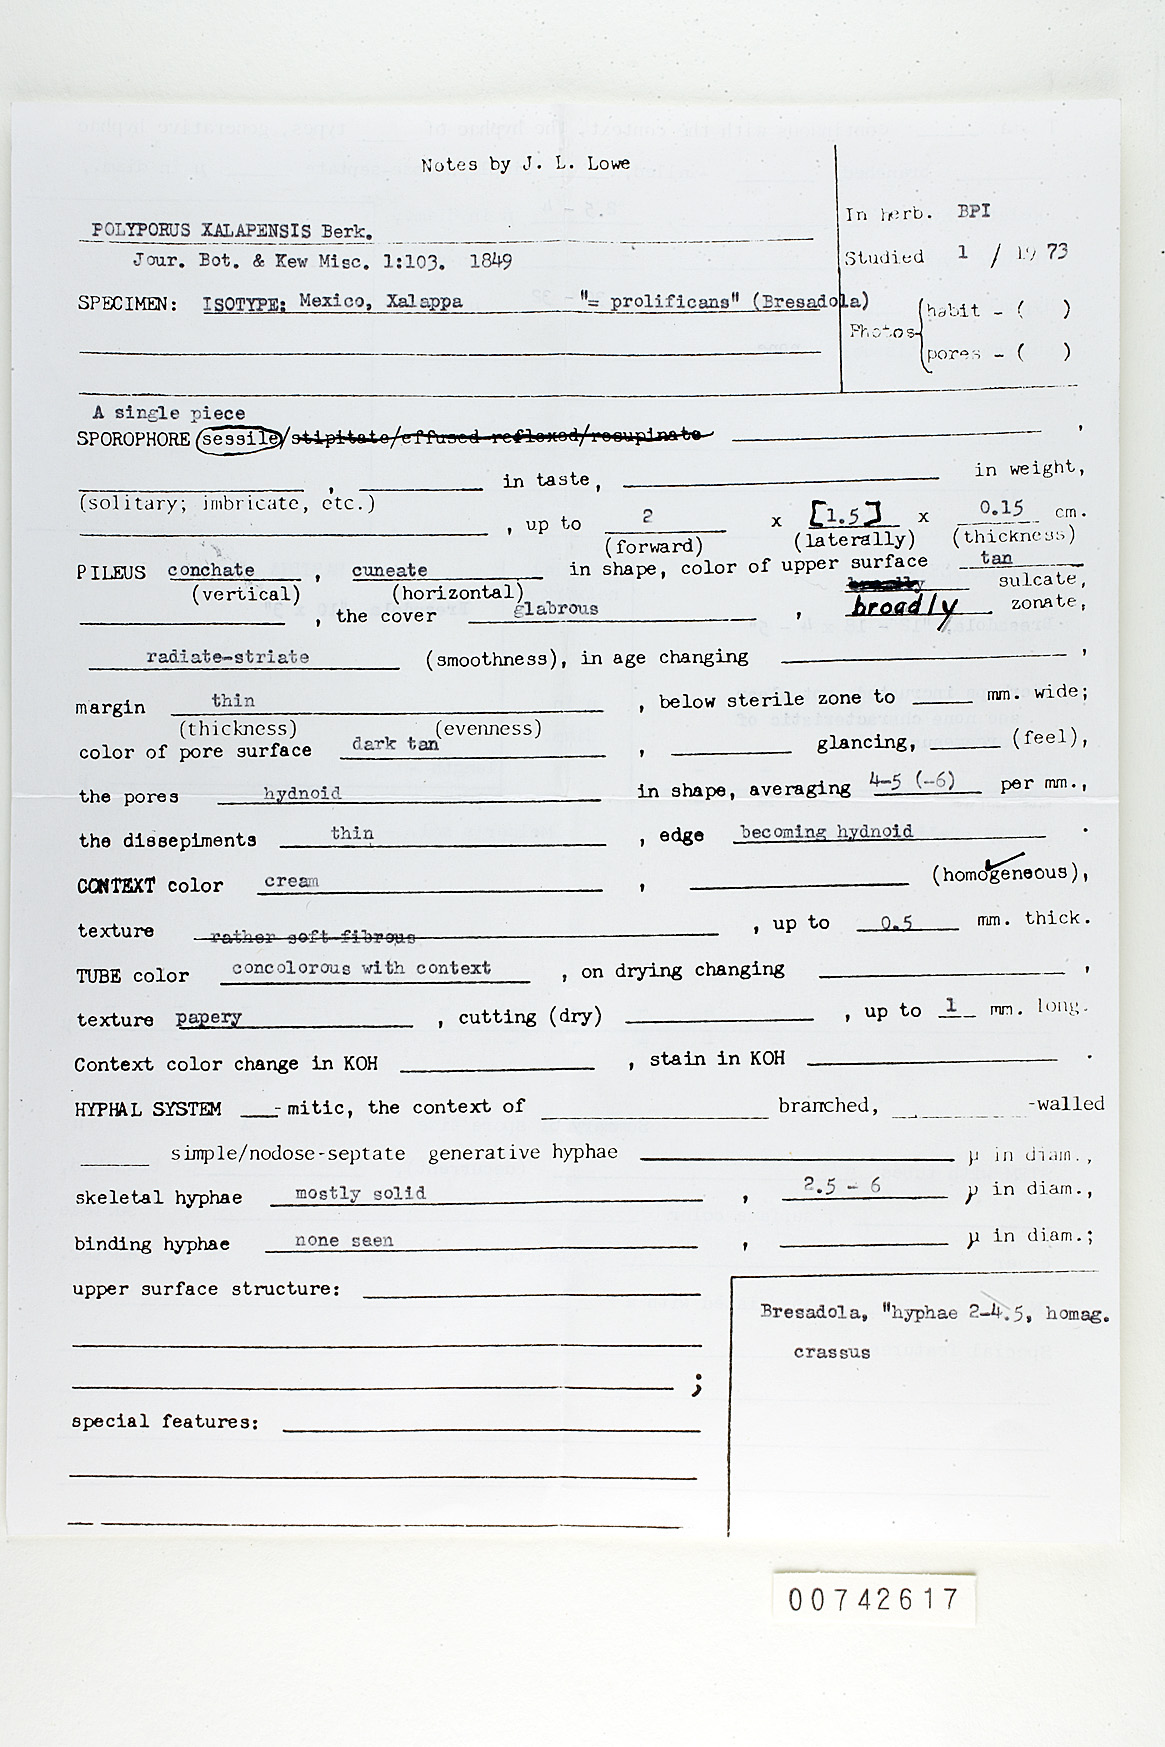 Notes by J. L. Lowe
In herb. BPI
POLYPORUS XALAPENSIS Berk.
Jour. Bot. & Kew Misc. 1:103. 1849
Studied 1 / 19 73
SPECIMEN: ISOTYPE: Mexico, Xalappa "= prolificans" (Bresadola)
Photos
habit - ( )
pores - ( )
A single piece
SPOROPHORE sessile/stipitate/effused-reflexed/resupinate ,
, in taste, in weight,
(solitary; imbricate, etc.)
, up to 2 x [1.5] x 0.15 cm.
(forward) (laterally) (thickness)
PILEUS conchate , cuneate in shape, color of upper surface tan
(vertical) (horizontal) broadly sulcate,
, the cover glabrous , broadly zonate,
radiate-striate (smoothness), in age changing ,
margin thin , below sterile zone to mm. wide;
(thickness) (evenness)
color of pore surface dark tan , glancing, (feel),
the pores hydnoid in shape, averaging 4-5 (-6) per mm.,
the dissepiments thin , edge becoming hydnoid .
CONTEXT color cream , (homogeneous),
texture rather soft-fibrous , up to 0.5 mm. thick.
TUBE color concolorous with context , on drying changing ,
texture papery , cutting (dry) , up to 1 mm. long.
Context color change in KOH , stain in KOH .
HYPHAL SYSTEM -mitic, the context of branched, -walled
simple/nodose-septate generative hyphae µ in diam.,
skeletal hyphae mostly solid , 2.5 - 6 µ in diam.,
binding hyphae none seen , µ in diam.;
upper surface structure:
;
special features:
Bresadola, "hyphae 2-4.5, homag.
crassus
00742617